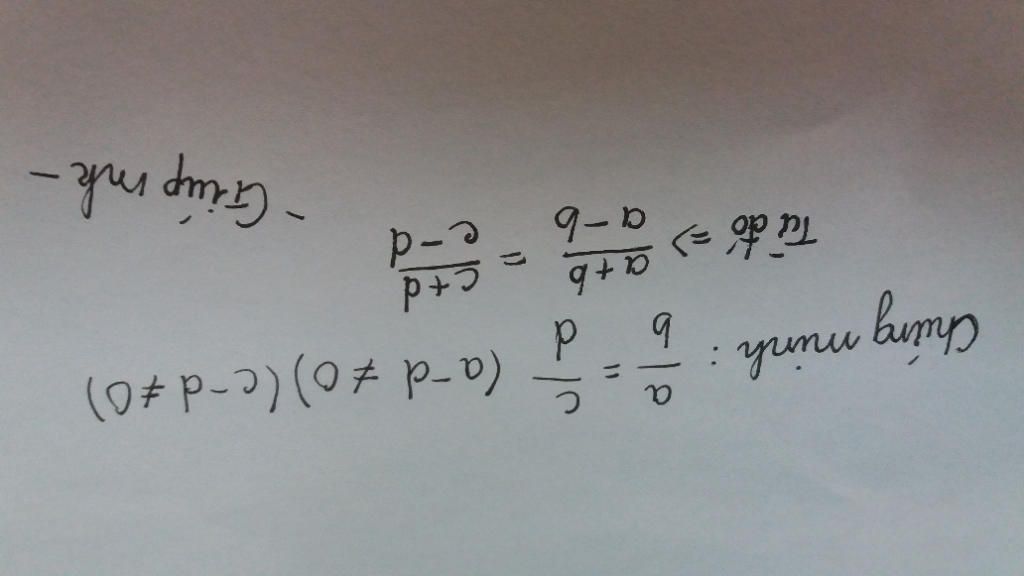 Chứng minh : a/b = c/d (a-d ≠ 0) (c-d ≠ 0)
Từ đó => a+b/a-b = c+d/c-d
- Giúp mk -